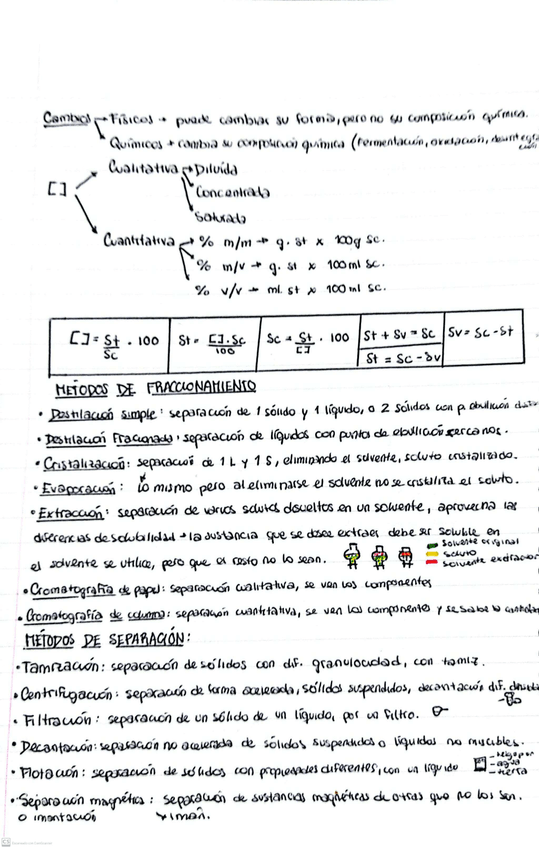 Cambios → Físicos → puede cambiar su forma, pero no su composición química.
→ Químicos → cambia su composición química (fermentación, oxidación,
[ ] → Cualitativa → Diluída
→ Concentrada
→ Saturada
→ Cuantitativa → % m/m → g. st x 100g sc.
→ % m/v → g. st x 100 ml sc.
→ % v/v → ml. st x 100 ml sc.
[ ] = St/Sc . 100 | St = [ ].Sc/100 | Sc = St/[ ] . 100 | St + Sv = Sc | Sv = Sc - St
St = Sc - Sv
METODOS DE FRACCIONAMIENTO
• Destilación simple: separación de 1 sólido y 1 líquido, o 2 sólidos con p. ebullición
• Destilación Fraccionada: separación de líquidos con puntos de ebullición cercanos.
• Cristalización: separación de 1 L y 1 S, eliminando el solvente, soluto cristalizado.
• Evaporación: lo mismo pero al eliminarse el solvente no se cristaliza el soluto.
• Extracción: separación de varios solutos disueltos en un solvente, aprovecha las
diferencias de solubilidad → la sustancia que se desee extraer debe ser soluble en
el solvente se utilice, pero que el resto no lo sean.
solvente original
soluto
solvente extractor
• Cromatografía de papel: separación cualitativa, se ven los componentes
• Cromatografía de columna: separación cuantitativa, se ven los componentes y se sabe la
MÉTODOS DE SEPARACIÓN:
• Tamización: separación de sólidos con dif. granulocidad, con tamiz.
• Centrifugación: separación de forma acelerada, sólidos suspendidos, decantación dif.
• Filtración: separación de un sólido de un líquido, por un filtro.
• Decantación: separación no acelerada de sólidos suspendidos o líquidos no miscibles.
• Flotación: separación de sólidos con propiedades diferentes, con un líquido
- agua
- tierra
• Separación magnética: separación de sustancias magnéticas de otras que no los son.
o imantación → imán.